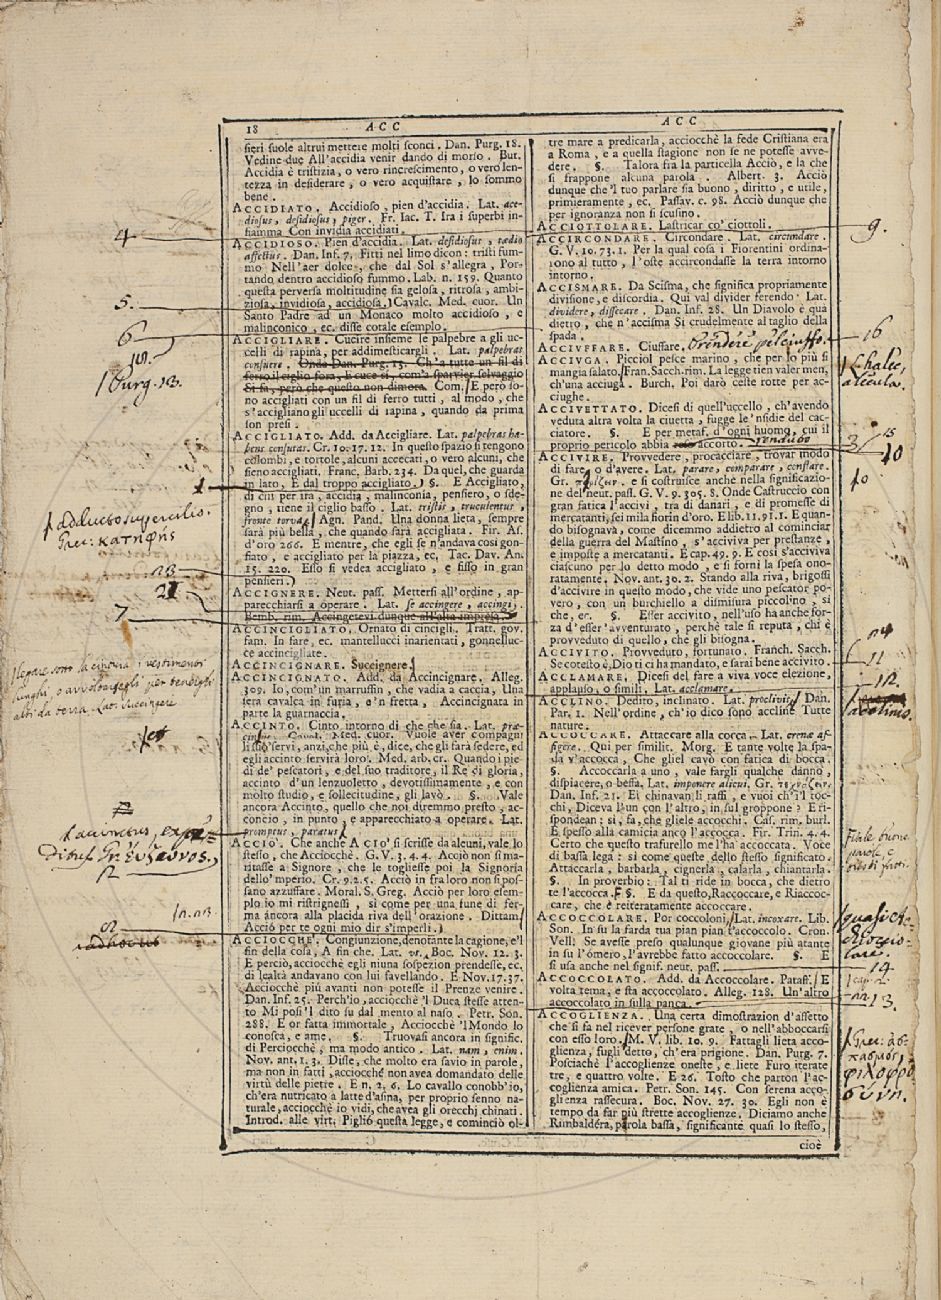 18 ACC
ACC
sieri suole altrui mettere molti sconci. Dan. Purg. 18.
Vedine due All'accidia venir dando di morso. But.
Accidia è tristizia, o vero rincrescimento, o vero len-
tezza in desiderare, o vero acquistare, lo sommo
bene.
ACCIDIATO. Accidioso, pien d'accidia. Lat. ace-
diosus, desidiosus, piger. Fr. Iac. T. Ira i superbi in-
fiamma Con invidia accidiati.
ACCIDIOSO. Pien d'accidia. Lat. desidiosus, tædio
affectus. Dan. Inf. 7. Fitti nel limo dicon: tristi fum-
mo Nell'aer dolce, che dal Sol s'allegra, Por-
tando dentro accidioso fummo. Lab. n. 159. Quanto
questa perversa moltitudine sia gelosa, ritrosa, ambi-
ziosa, invidiosa, accidiosa. Cavalc. Med. cuor. Un
Santo Padre ad un Monaco molto accidioso, e
malinconico, ec. disse cotale esemplo.
ACCIGLIARE. Cucire insieme le palpebre a gli uc-
celli di rapina, per addimesticargli. Lat. palpebras
consuere. Onde Dan. Purg. 13. Ch'a tutte un fil di
ferro il ciglio fora, E cuce sì, com'a sparvier selvaggio
Si fa, però che questo non dimora. Com. E però so-
no accigliati con un fil di ferro tutti, al modo, che
s'accigliano gli uccelli di rapina, quando da prima
son presi.
ACCIGLIATO. Add. da Accigliare. Lat. palpebras ha-
bens consutas. Cr. 10. 17. 12. In questo spazio si tengono
colombi, e tortole, alcuni accecati, o vero alcuni, che
sieno accigliati. Franc. Barb. 234. Da quel, che guarda
in lato, E dal troppo accigliato. §. E Accigliato,
di chi per ira, accidia, malinconia, pensiero, o sde-
gno, tiene il ciglio basso. Lat. tristis, truculentus,
fronte torva. Agn. Pand. Una donna lieta, sempre
sarà più bella, che quando sarà accigliata. Fir. As.
d'oro 266. E mentre, che egli se n'andava così gon-
fiato, e accigliato per la piazza, ec. Tac. Dav. An.
15. 220. Esso si vedea accigliato, e fisso in gran
pensieri.
ACCIGNERE. Neut. pass. Mettersi all'ordine, ap-
parecchiarsi a operare. Lat. se accingere, accingi.
Bemb. rim. Accingetevi dunque all'alta impresa.
ACCINCIGLIATO. Ornato di cincigli. Tratt. gov.
fam. In fare, ec. mantellucci inarientati, gonnelluc-
ce accincigliate.
ACCINCIGNARE. Succignere.
ACCINCIGNATO. Add. da Accincignare. Alleg.
309. Io, com'un marrussin, che vadia a caccia, Una
iera cavalca in furia, o'n fretta, Accincignata in
parte la guarnaccia.
ACCINTO. Cinto intorno di che che sia. Lat. præ-
cinctus. Cavalc. Med. cuor. Vuole aver compagni
li suo' servi, anzi, che più è, dice, che gli farà sedere, ed
egli accinto servirà loro. Med. arb. cr. Quando i pie-
di de' pescatori, e del suo traditore, il Re di gloria,
accinto d'un lenzuoletto, devotissimamente, e con
molto studio, e sollecitudine, gli lavò. §. Vale
ancora Accinto, quello che noi diremmo presto, ac-
concio, in punto, e apparecchiato a operare. Lat.
promptus, paratus.
ACCIO'. Che anche A CIO' si scrisse da alcuni, vale lo
stesso, che Acciocchè. G. V. 3. 4. 4. Acciò non si ma-
ritasse a Signore, che le togliesse poi la Signoria
dello'mperio. Cr. 9. 2. 5. Acciò in fra loro non si pos-
sano azzuffare. Moral. S. Greg. Acciò per loro esem-
plo io mi ristrignessi, sì come per una fune di fer-
ma áncora alla placida riva dell'orazione. Dittam.
Acciò per te ogni mio dir s'imperli.
ACCIOCCHE'. Congiunzion, denotante la cagione, e'l
fin della cosa, A fin che. Lat. ut. Boc. Nov. 12. 3.
E perciò, acciocchè egli niuna sospezion prendesse, ec.
di lealtà andavano con lui favellando. E Nov. 17. 37.
Acciocchè più avanti non potesse il Prenze venire.
Dan. Inf. 25. Perch'io, acciocchè 'l Duca stesse atten-
to Mi posi 'l dito su dal mento al naso. Petr. Son.
288. E or fatta immortale, Acciocchè 'l Mondo lo
conosca, e ame. §. Truovasi ancora in signific.
di Perciocchè, ma modo antico. Lat. nam, enim.
Nov. ant. 1. 3. Disse, che molto era savio in parole,
ma non in fatti, acciocchè non avea domandato delle
virtù delle pietre. E n. 2. 6. Lo cavallo conobb'io,
ch'era nutricato a latte d'asina, per proprio senno na-
turale, acciocchè io vidi, che avea gli orecchj chinati.
Introd. alle virt. Pigliò questa legge, e cominciò ol-
tre mare a predicarla, acciocchè la fede Cristiana era
a Roma, e a quella stagione non se ne potesse avve-
dere. §. Talora fra la particella Acciò, e la che
si frappone alcuna parola. Albert. 3. Acciò
dunque che 'l tuo parlare sia buono, diritto, e utile,
primieramente, ec. Passav. c. 98. Acciò dunque che
per ignoranza non si scusino.
ACCIOTTOLARE. Lastricar co' ciottoli.
ACCIRCONDARE. Circondare. Lat. circundare.
G. V. 10. 73. 1. Per la qual cosa i Fiorentini ordina-
rono al tutto, l'oste accircondasse la terra intorno
intorno.
ACCISMARE. Da Scisma, che significa propriamente
divisione, e discordia. Qui val divider ferendo. Lat.
dividere, dissecare. Dan. Inf. 28. Un Diavolo è qua
dietro, che n'accisma Sì crudelmente al taglio della
spada.
ACCIUFFARE. Ciuffare.
ACCIUGA. Picciol pesce marino, che per lo più si
mangia salato. Fran. Sacch. rim. La legge tien valer men,
ch'una acciuga. Burch. Poi darò ceste rotte per ac-
ciughe.
ACCIVETTATO. Dicesi di quell'uccello, ch'avendo
veduta altra volta la civetta, fugge le 'nsidie del cac-
ciatore. §. E per metaf. d'ogni huomo, cui il
proprio pericolo abbia accorto. renduto
ACCIVIRE. Provvedere, procacciare, trovar modo
di fare, o d'avere. Lat. parare, comparare, conflare.
Gr. e si costruisce anche nella significazio-
ne del neut. pass. G. V. 9. 305. 8. Onde Castruccio con
gran fatica l'accivì, tra di danari, e di promesse di
mercatanti, sei mila fiorin d'oro. E lib. 11. 91. 1. E quan-
do bisognava, come dicemmo addietro al cominciar
della guerra del Mastino, s'acciviva per prestanze,
e imposte a mercatanti. E cap. 49. 9. E così s'acciviva
ciascuno per lo detto modo, e si fornì la spesa ono-
ratamente. Nov. ant. 30. 2. Stando alla riva, brigossi
d'accivire in questo modo, che vide uno pescator po-
vero, con un burchiello a dismisura piccolino, sì
che, ec. §. Esser accivito, nell'uso ha anche for-
za d'esser avventurato, perchè tale si reputa, chi è
provveduto di quello, che gli bisogna.
ACCIVITO. Provveduto, fortunato. Franch. Sacch.
Se cotesto è, Dio ti ci ha mandato, e sarai bene accivito.
ACCLAMARE. Dicesi del fare a viva voce elezione,
applauso, o simili. Lat. acclamare.
ACCLINO. Dedito, inclinato. Lat. proclivis. Dan.
Par. 1. Nell'ordine, ch'io dico sono accline Tutte
nature.
ACCOCCARE. Attaccare alla cocca. Lat. crenæ af-
figere. Qui per similit. Morg. E tante volte la spa-
da v'accocca, Che gliel cavò con fatica di bocca.
§. Accoccarla a uno, vale fargli qualche danno,
dispiacere, o beffa. Lat. imponere alicui. Gr.
Dan. Inf. 21. Ei chinavan li raffi, e vuoi ch'i'l toc-
chi, Diceva l'un con l'altro, in sul groppone: E ri-
spondean: sì, fa, che gliele accocchi. Cas. rim. burl.
E spesso alla camicia anco l'accocca. Fir. Trin. 4. 4.
Certo che questo trafurello me l'ha accoccata. Voce
di bassa lega: sì come queste dello stesso significato.
Attaccarla, barbarla, cignerla, calarla, chiantarla.
§. In proverbio: Tal ti ride in bocca, che dietro
te l'accocca. §. E da questo, Raccoccare, e Riaccoc-
care, che è reiteratamente accoccare.
ACCOCCOLARE. Por coccoloni. Lat. incoxare. Lib.
Son. In su la farda tua pian pian t'accoccolo. Cron.
Vell. Se avesse preso qualunque giovane più atante
in su l'ómero, l'avrebbe fatto accoccolare. §. E
si usa anche nel signif. neut. pass.
ACCOCCOLATO. Add. da Accoccolare. Pataff. E
volta tema, e sta accoccolato. Alleg. 128. Un'altro
accoccolato in sulla panca.
ACCOGLIENZA. Una certa dimostrazion d'affetto
che si fa nel ricever persone grate, o nell'abboccarsi
con esso loro. M. V. lib. 10. 9. Fattagli lieta acco-
glienza, fugli detto, ch'era prigione. Dan. Purg. 7.
Posciachè l'accoglienze oneste, e liete Furo iterate
tre, e quattro volte. E 26. Tosto che parton l'ac-
coglienza amica. Petr. Son. 145. Con serena acco-
glienza rassecura. Boc. Nov. 27. 30. Egli non è
tempo da far più strette accoglienze. Diciamo anche
Rimbaldéra, parola bassa, significante quasi lo stesso,
cioè
4
5.
6
Purg. 13.
1
adducto supercilio.
Grec: κατηφής
7
12
9.
16
Chalec,
alecula.
10
11
12.
14
13.